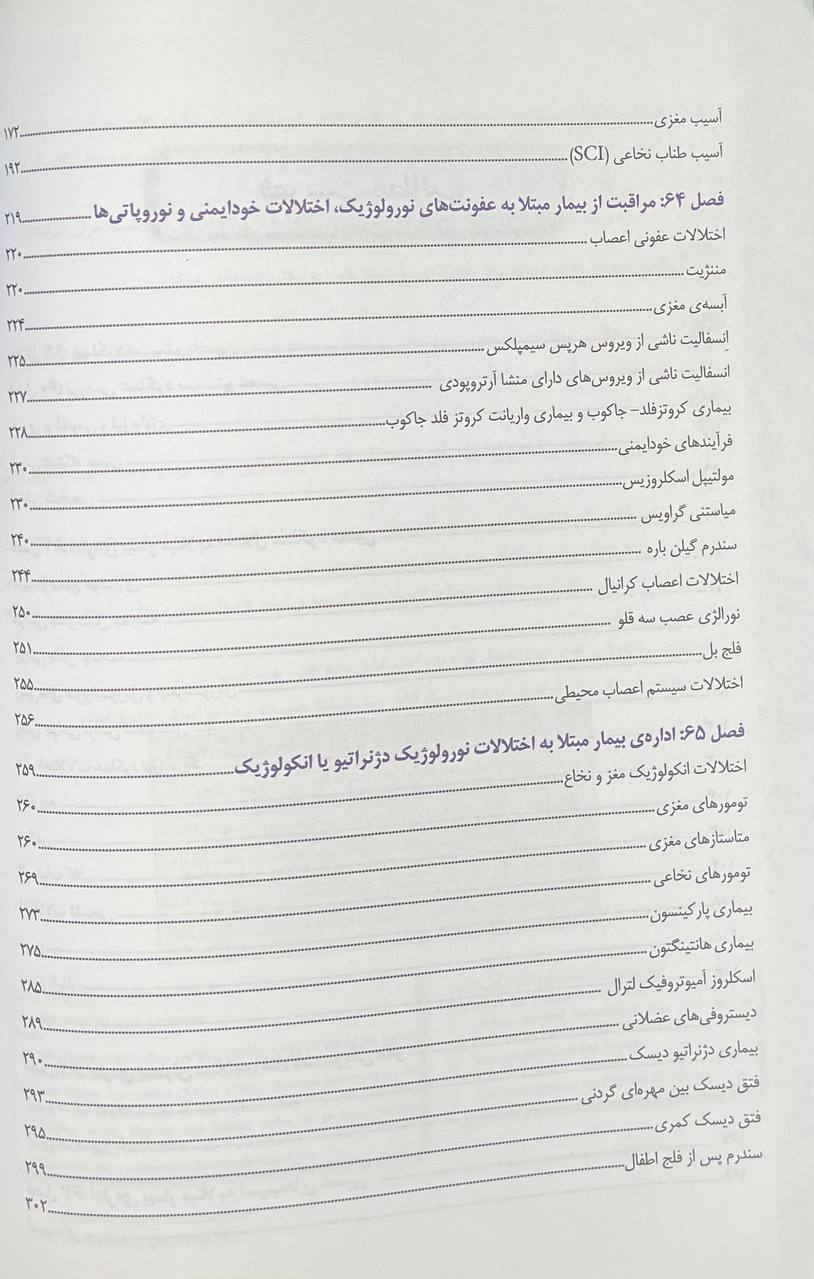 آسیب مغزی ۱۷۲
آسیب طناب نخاعی (SCI) ۱۹۲
فصل ۶۴: مراقبت از بیمار مبتلا به عفونت‌های نورولوژیک، اختلالات خودایمنی و نوروپاتی‌ها ۲۱۹
اختلالات عفونی اعصاب ۲۲۰
مننژیت ۲۲۰
آبسه‌ی مغزی ۲۲۴
اِنسفالیت ناشی از ویروس هرپس سیمپلکس ۲۲۵
انسفالیت ناشی از ویروس‌های دارای منشا آرتروپودی ۲۲۷
بیماری کروتزفلد- جاکوب و بیماری واریانت کروتز فلد جاکوب ۲۲۸
فرآیندهای خودایمنی ۲۳۰
مولتیپل اسکلروزیس ۲۳۰
میاستنی گراویس ۲۴۰
سندرم گیلن باره ۲۴۴
اختلالات اعصاب کرانیال ۲۵۰
نورالژی عصب سه قلو ۲۵۱
فلج بل ۲۵۵
اختلالات سیستم اعصاب محیطی ۲۵۶
فصل ۶۵: اداره‌ی بیمار مبتلا به اختلالات نورولوژیک دژنراتیو یا انکولوژیک ۲۵۹
اختلالات انکولوژیک مغز و نخاع ۲۶۰
تومورهای مغزی ۲۶۰
متاستازهای مغزی ۲۶۹
تومورهای نخاعی ۲۷۳
بیماری پارکینسون ۲۷۵
بیماری هانتینگتون ۲۸۵
اسکلروز آمیوتروفیک لترال ۲۸۹
دیستروفی‌های عضلانی ۲۹۰
بیماری دژنراتیو دیسک ۲۹۳
فتق دیسک بین مهره‌ای گردنی ۲۹۵
فتق دیسک کمری ۲۹۹
سندرم پس از فلج اطفال ۳۰۲